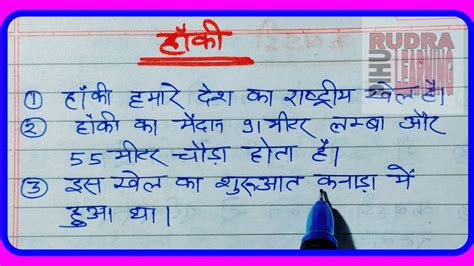 हॉकी
RUDRA
LEARNING
① हॉकी हमारे देश का राष्ट्रीय खेल है।
② हॉकी का मैदान 91 मीटर लम्बा और
55 मीटर चौड़ा होता है।
③ इस खेल का शुरूआत कनाडा में
हुआ था।